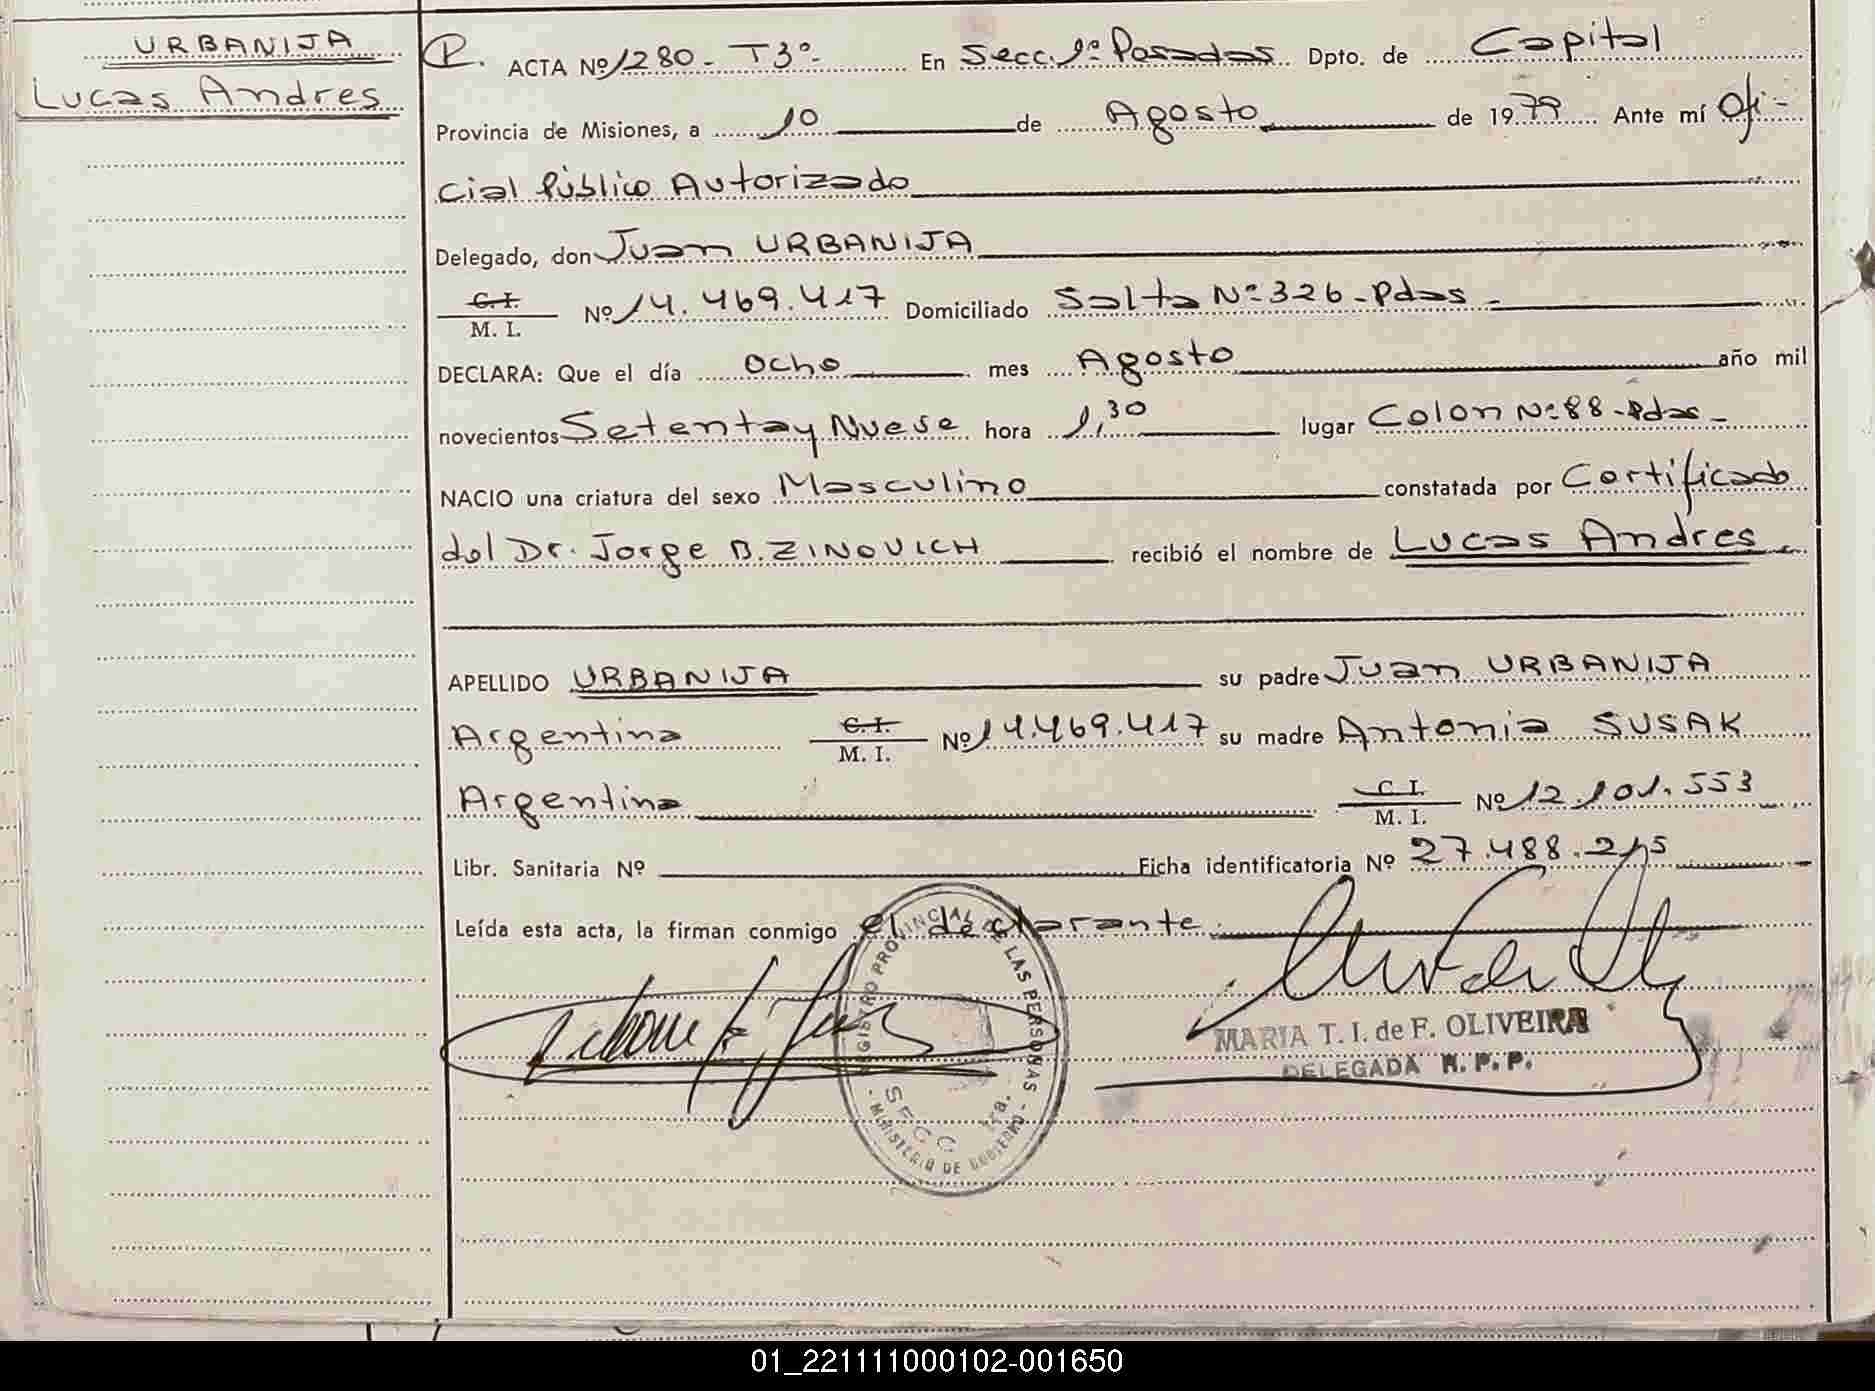 URBANIJA
Lucas Andres
P. ACTA Nº 1280 - T3º- En Secc. 1º: Posadas Dpto. de Capital
Provincia de Misiones, a 10 de Agosto de 1979 Ante mí Ofi-
cial Público Autorizado
Delegado, don Juan URBANIJA
C. I.
M. I. Nº 14.469.417 Domiciliado Salta Nº 326 - Pdas -
DECLARA: Que el día Ocho mes Agosto año mil
novecientos Setenta y Nueve hora 1,30 lugar Colon Nº 88 - Pdas -
NACIO una criatura del sexo Masculino constatada por Certificado
del Dr. Jorge B. ZINOVICH recibió el nombre de Lucas Andres
APELLIDO URBANIJA su padre Juan URBANIJA
Argentina C. I. M. I. Nº 14.469.417 su madre Antonia SUSAK
Argentina C. I. M. I. Nº 12.101.553
Libr. Sanitaria Nº Ficha identificatoria Nº 27.488.215
Leída esta acta, la firman conmigo el declarante.
REGISTRO PROVINCIAL DE LAS PERSONAS - MINISTERIO DE GOBIERNO -
SECC. 1ra.
MARIA T. I. de F. OLIVEIRA
DELEGADA R. P. P.
01_221111000102-001650